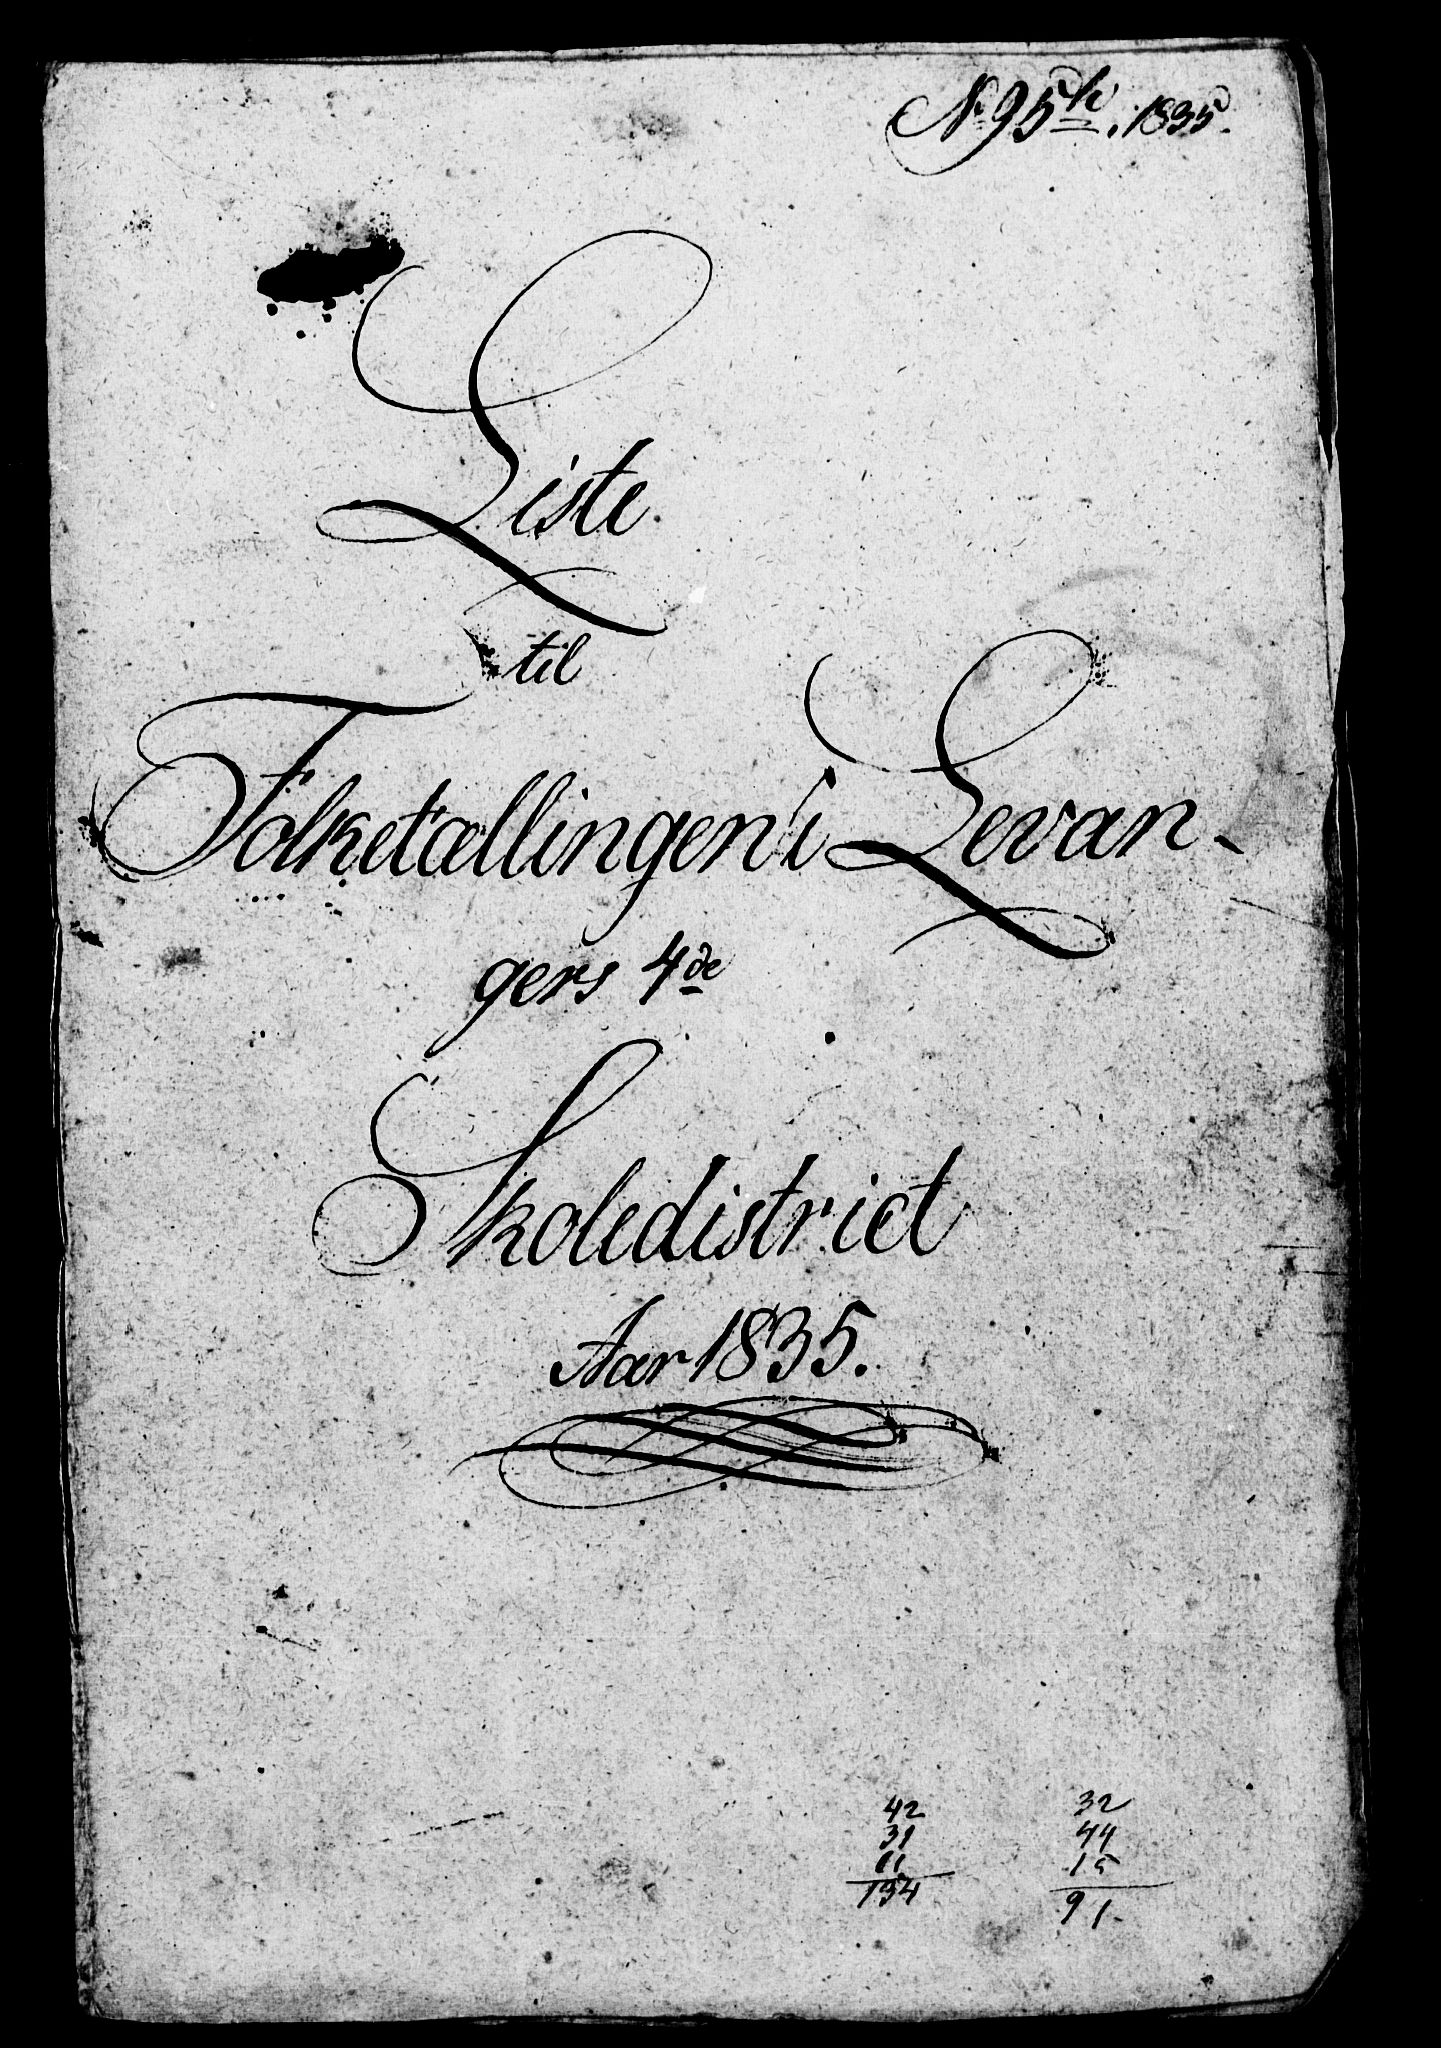 No 95 h. 1835.
Liste
til
Folketællingen i Levan-
gers 4de
Skoledistrict
Aar 1835.
42 32
44
15
91